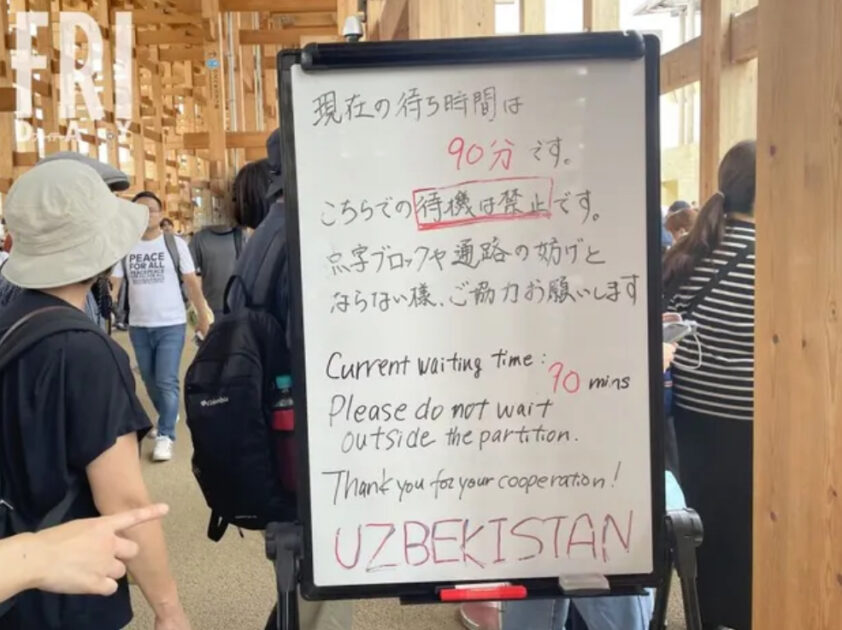 FRI
DAY
現在の待ち時間は
90分です。
こちらでの待機は禁止です。
点字ブロックや通路の妨げと
ならない様、ご協力お願いします
Current waiting time:
90 mins
Please do not wait
outside the partition.
Thank you for your cooperation!
UZBEKISTAN
PEACE
FOR ALL
Columbia